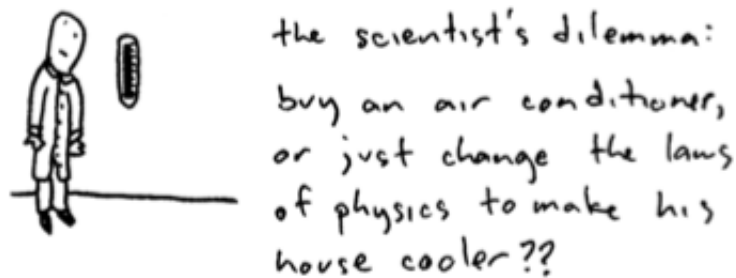 the scientist's dilemma:
buy an air conditioner,
or just change the laws
of physics to make his
house cooler??